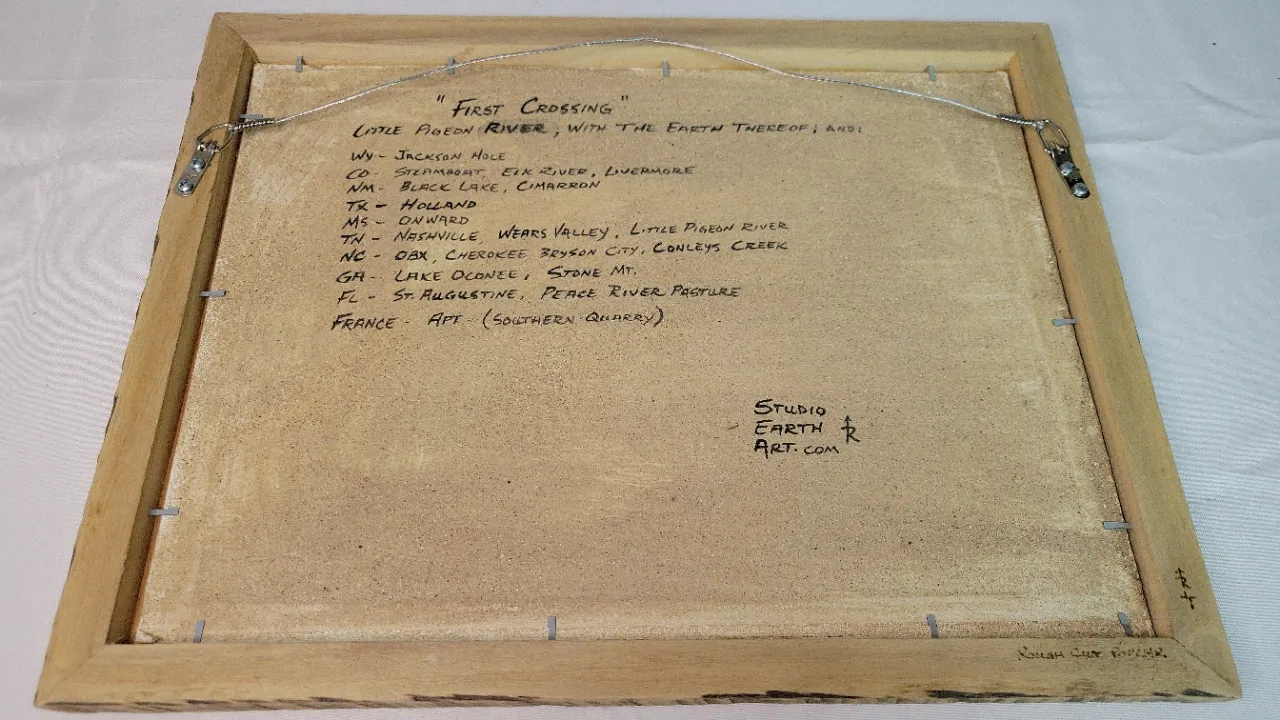 "FIRST CROSSING"
LITTLE PIGEON RIVER, WITH THE EARTH THEREOF; AND:
WY- JACKSON HOLE
CO- STEAMBOAT, ELK RIVER, LIVERMORE
NM- BLACK LAKE, CIMARRON
TX- HOLLAND
MS- ONWARD
TN- NASHVILLE, WEARS VALLEY, LITTLE PIGEON RIVER
NC- OBX, CHEROKEE BRYSON CITY, CONLEYS CREEK
GA- LAKE OCONEE, STONE MT.
FL- ST. AUGUSTINE, PEACE RIVER PASTURE
FRANCE- APT- (SOUTHERN QUARRY)
STUDIO
EARTH
ART.COM
ROUGH CUT POPLAR